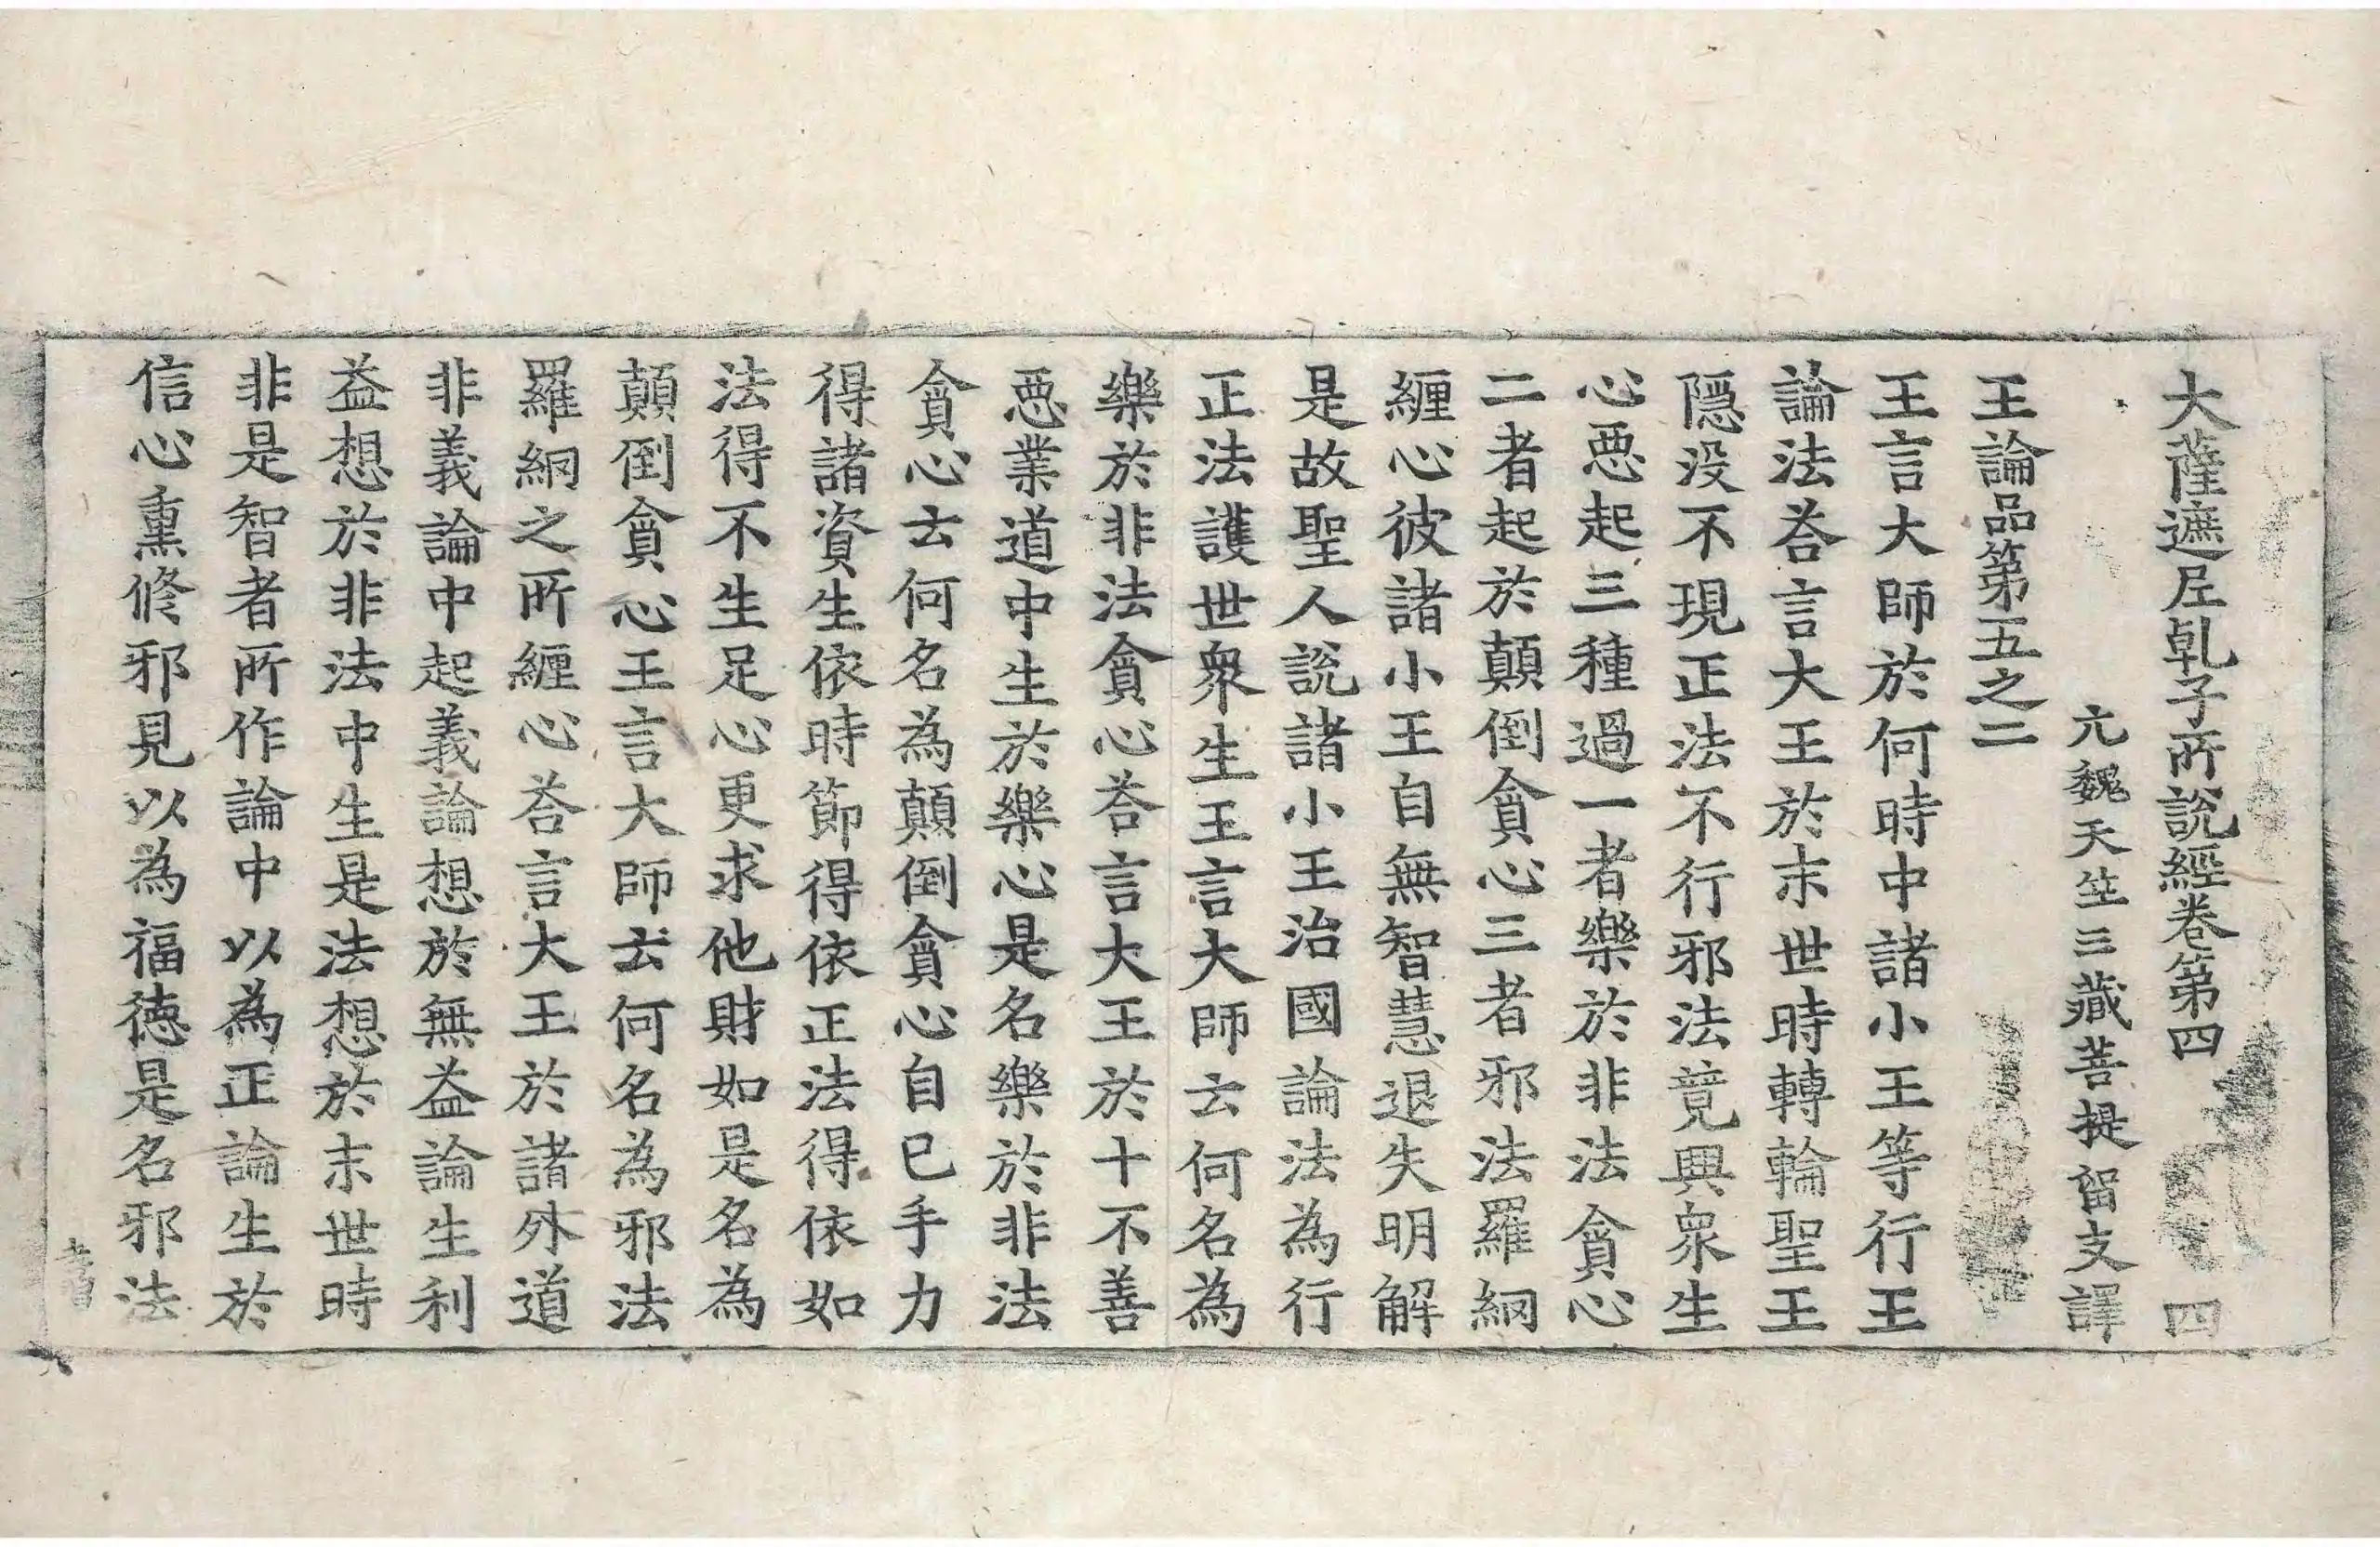 大薩遮𡰱乹子所說經卷第四 四
元魏天竺三藏菩提留支譯
王論品第五之二
王言大師於何時中諸小王等行王
論法荅言大王於末世時轉輪聖王
隱没不現正法不行邪法竟興衆生
心惡起三種過一者樂於非法貪心
二者起於顛倒貪心三者邪法羅網
纏心彼諸小王自無智慧退失明解
是故聖人說諸小王治國論法為行
正法護世衆生王言大師云何名為
樂於非法貪心荅言大王於十不善
惡業道中生於樂心是名樂於非法
貪心云何名為顛倒貪心自巳手力
得諸資生依時節得依正法得依如
法得不生足心更求他財如是名為
顛倒貪心王言大師云何名為邪法
羅網之所纏心荅言大王於諸外道
非義論中起義論想於無益論生利
益想於非法中生是法想於末世時
非是智者所作論中以為正論生於
信心熏修邪見以為福德是名邪法